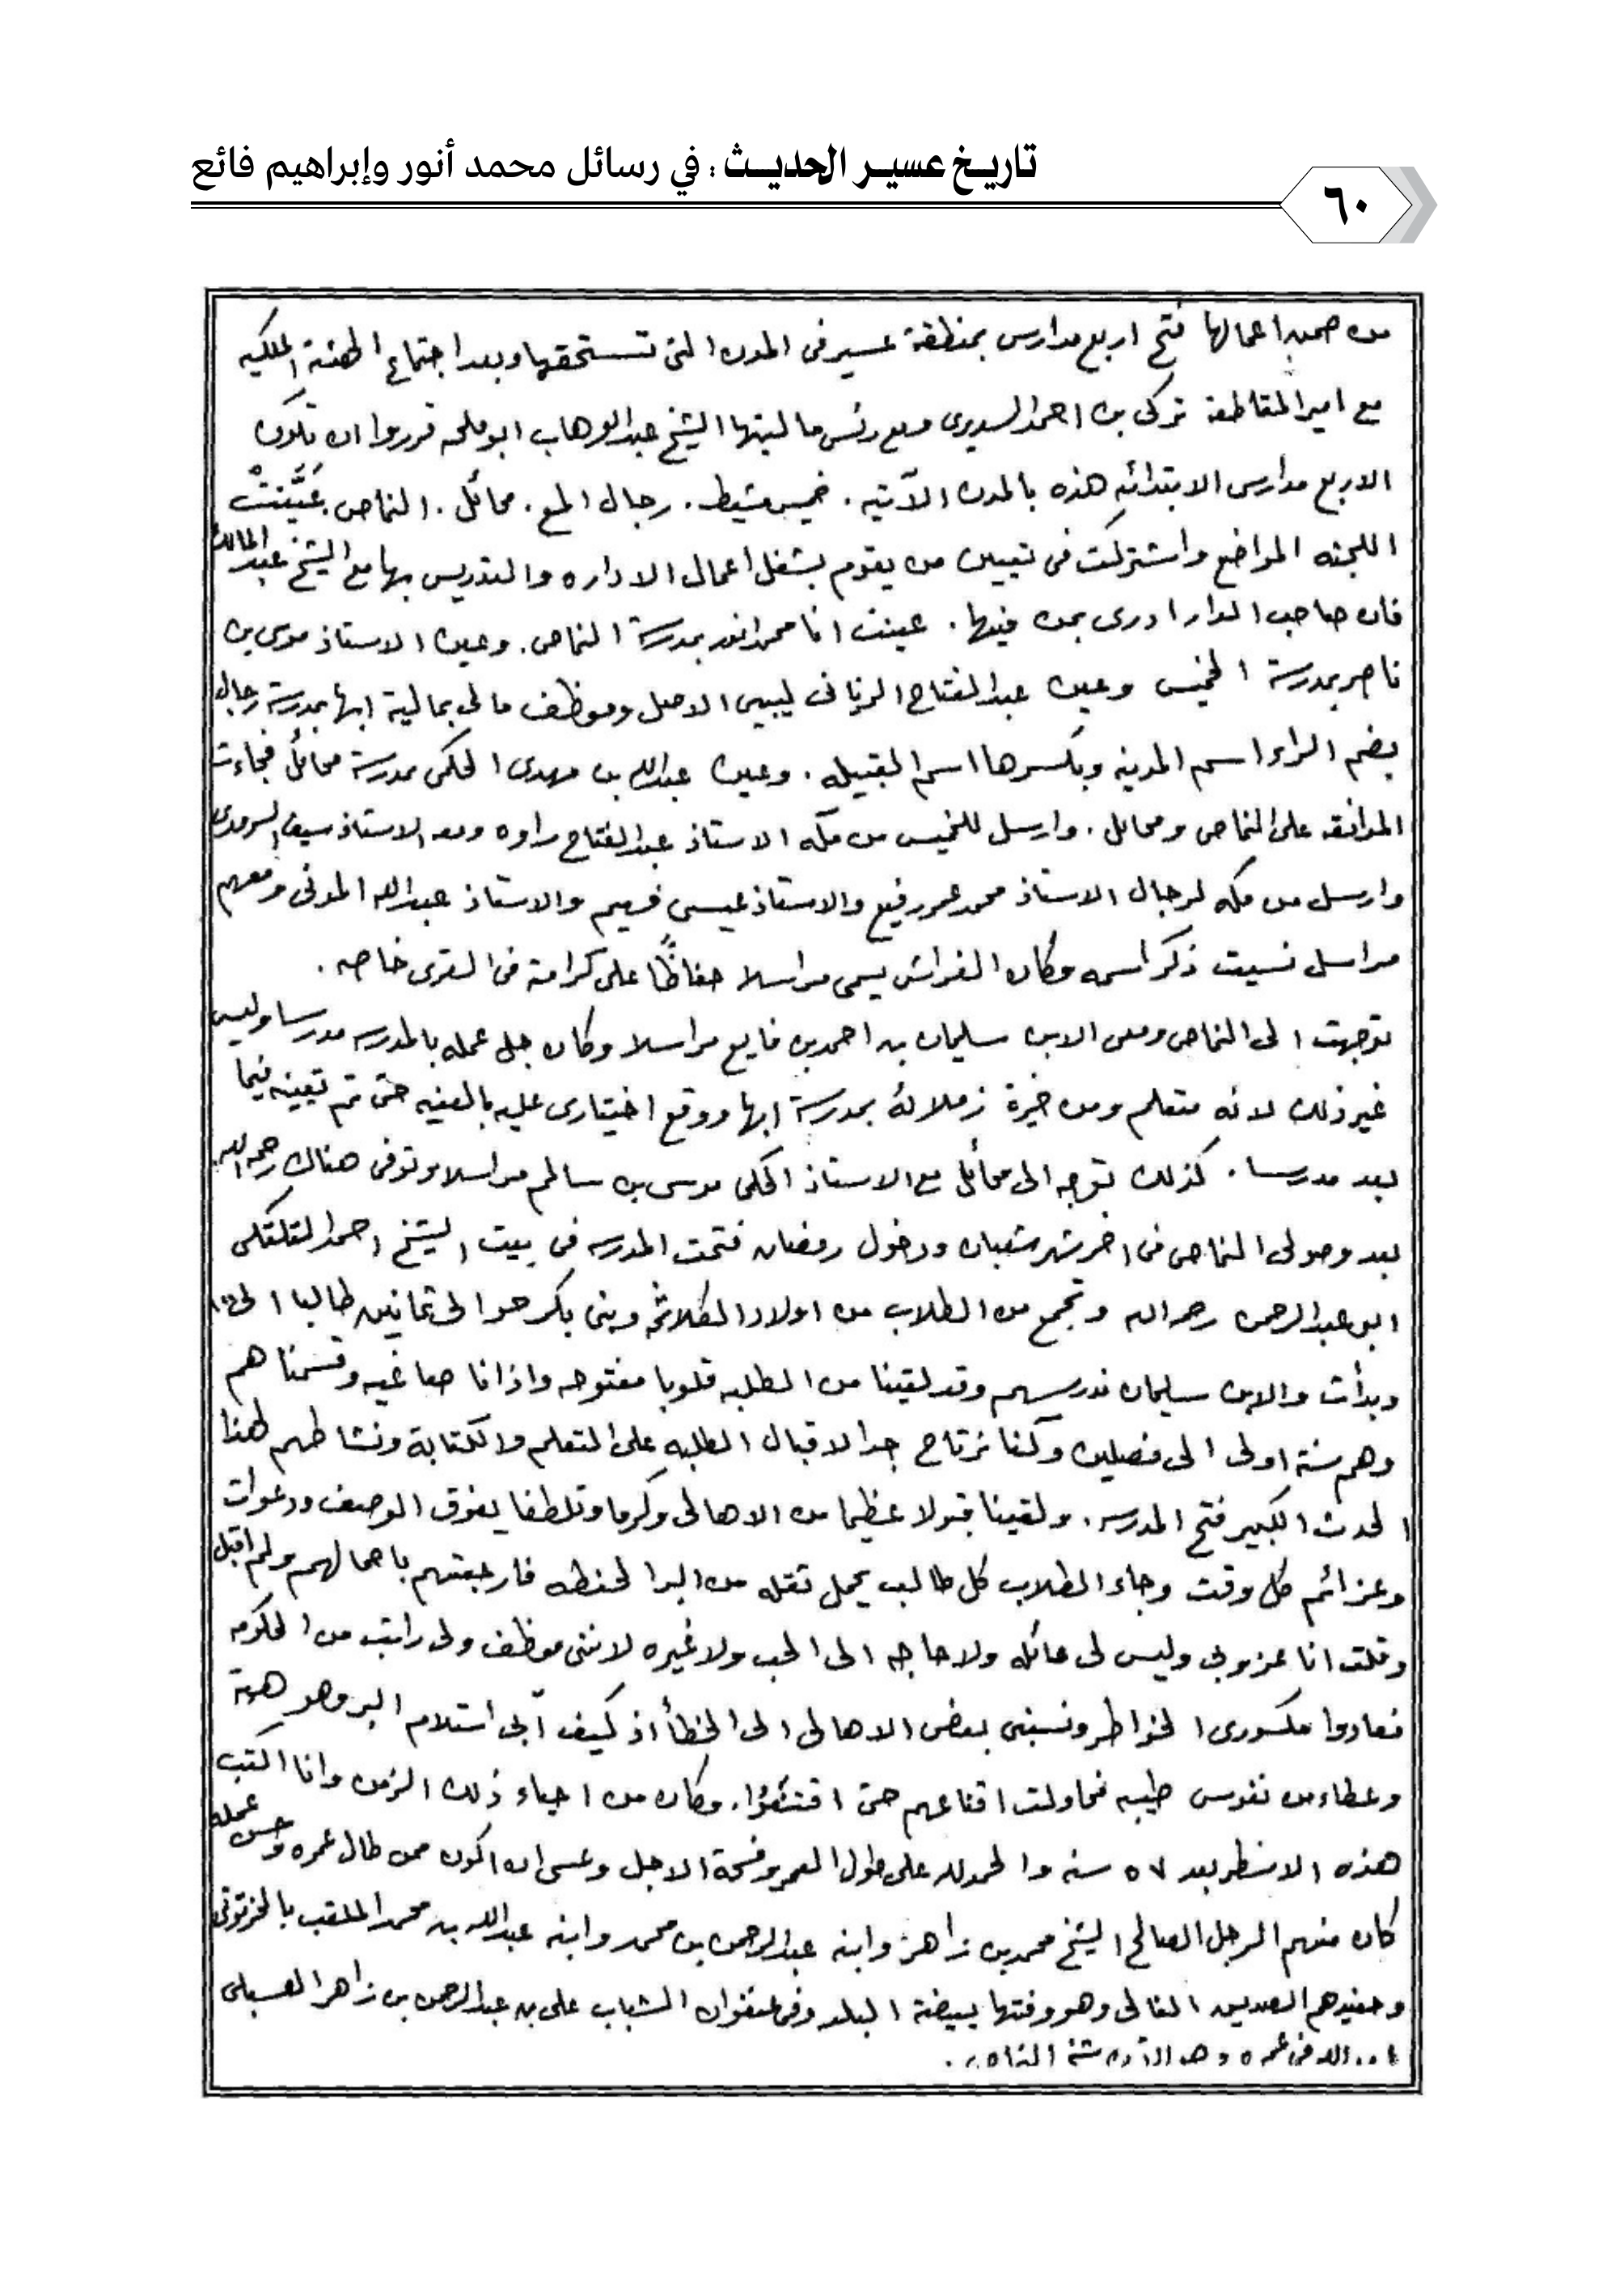 تاريخ عسير الحديث : في رسائل محمد أنور وإبراهيم فائع
٦٠
من صميم اعمالها فتح اربع مدارس بمنطقة عسير فى المدن التى تستحقها وبعد اجتماع الهيئة الملكيه
مع امير المقاطعة تركى بن احمد السديرى ومع رئس ماليتها الشيخ عبدالوهاب ابو ملحه قرروا ان تكون
الاربع مدارس الابتدائيه هذه بالمدن الآتيه . خميس مشيط . رجال المع . محائل . النماص . عَيَّنتْ
اللجنه المواضع واشتركت فى تعيين من يقوم بشغل اعمال الاداره والتدريس بها مع الشيخ عبدالمالك
فان صاحب الدار ادرى بمن فيها . عينت انا محمدانور بمدرسة النماص . وعين الاستاذ موسى بن
ناصر بمدرسة الخميس وعين عبدالفتاح ليبيى الاصل وموظف مالى بمالية ابها بمدرسة رجال
بضم الراء اسم المدينه وبكسرها اسم القبيله . وعين عبدالله بن مهدى الحكمى بمدرسة محائل فجاءت
الموافقه على النماص ومحائل . وارسل للخميس من مكه الاستاذ عبدالفتاح راوه ومعه الاستاذ سيف
وارسل من مكه لرجال الاستاذ محمد عمر رفيع والاستاذ عيسى فهيم والاستاذ عبدالله ومعهم
مراسل نسيت ذكر اسمه وكان الفراش يسمى مراسلا حفاظًا على كرامة فى القرى خاصه .
توجهت الى النماص ومعى الابن سليمان بن احمد بن فايع مراسلا وكان جل عمله بالمدرسه مدرسا وليس
غير ذلك لانه متعلم ومن خيرة زملائه بمدرسة ابها ووقع اختيارى عليه بالعنيه حتى تم تعيينه فيما
بعد مدرسا . كذلك توجه الى محائل مع الاستاذ الحكمى موسى بن سالم مراسلا وتوفى هناك رحمه الله
بعد وصولى النماص فى اخر شهر شعبان ودخول رمضان فتحت المدرسه فى بيت الشيخ احمد
ابو عبدالرحمن رحمه الله وتجمع من الطلاب من اولاد وبنى بكر حوالى ثمانين طالبا
وبدأت والابن سليمان ندرسهم وقد لقينا من الطلبه قلوبا مفتوحه واذانا صاغيه وقسمناهم
وهم سنة اولى الى فصلين وكنا نرتاح جدا لاقبال الطلبه على التعلم والكتابة ونشاطهم لهذا
الحدث الكبير فتح المدرسه . ولقينا قبولا عظيما من الاهالى وكرما وتلطفا يفوق الوصف ودعوات
وعزائم كل وقت وجاء الطلاب كل طالب يحمل ثقله من البر الحنطه فارجعتهم باحمالهم ولم اقبل
وقلت انا عزوبي وليس لى عائله ولا حاجه الى الحب ولا غيره لاننى موظف ولى راتب من الحكومه
فعادوا مكسورى الخواطر ونسبنى بعض الاهالى الى الخطأ اذ كيف آبى استلام البر وهو هبة
وعطاء من نفوس طيبه فحاولت اقناعهم حتى اقتنعوا . وكان من احياء ذلك الزمن وانا اكتب
هذه الاسطر بعد ٥٧ سنه والحمدلله على طول العمر وفسحة الاجل وعسى ان اكون ممن طال عمره وحسن عمله
كان منهم الرجل الصالح الشيخ محمد بن زاهر وابنه عبدالرحمن بن محمد وابنه عبدالله بن محمد الملقب
وحفيدهم الصديق الغالى وهو وقتها بيضة البلد وفى عنفوان الشباب على بن عبدالرحمن بن زاهر العسبلى